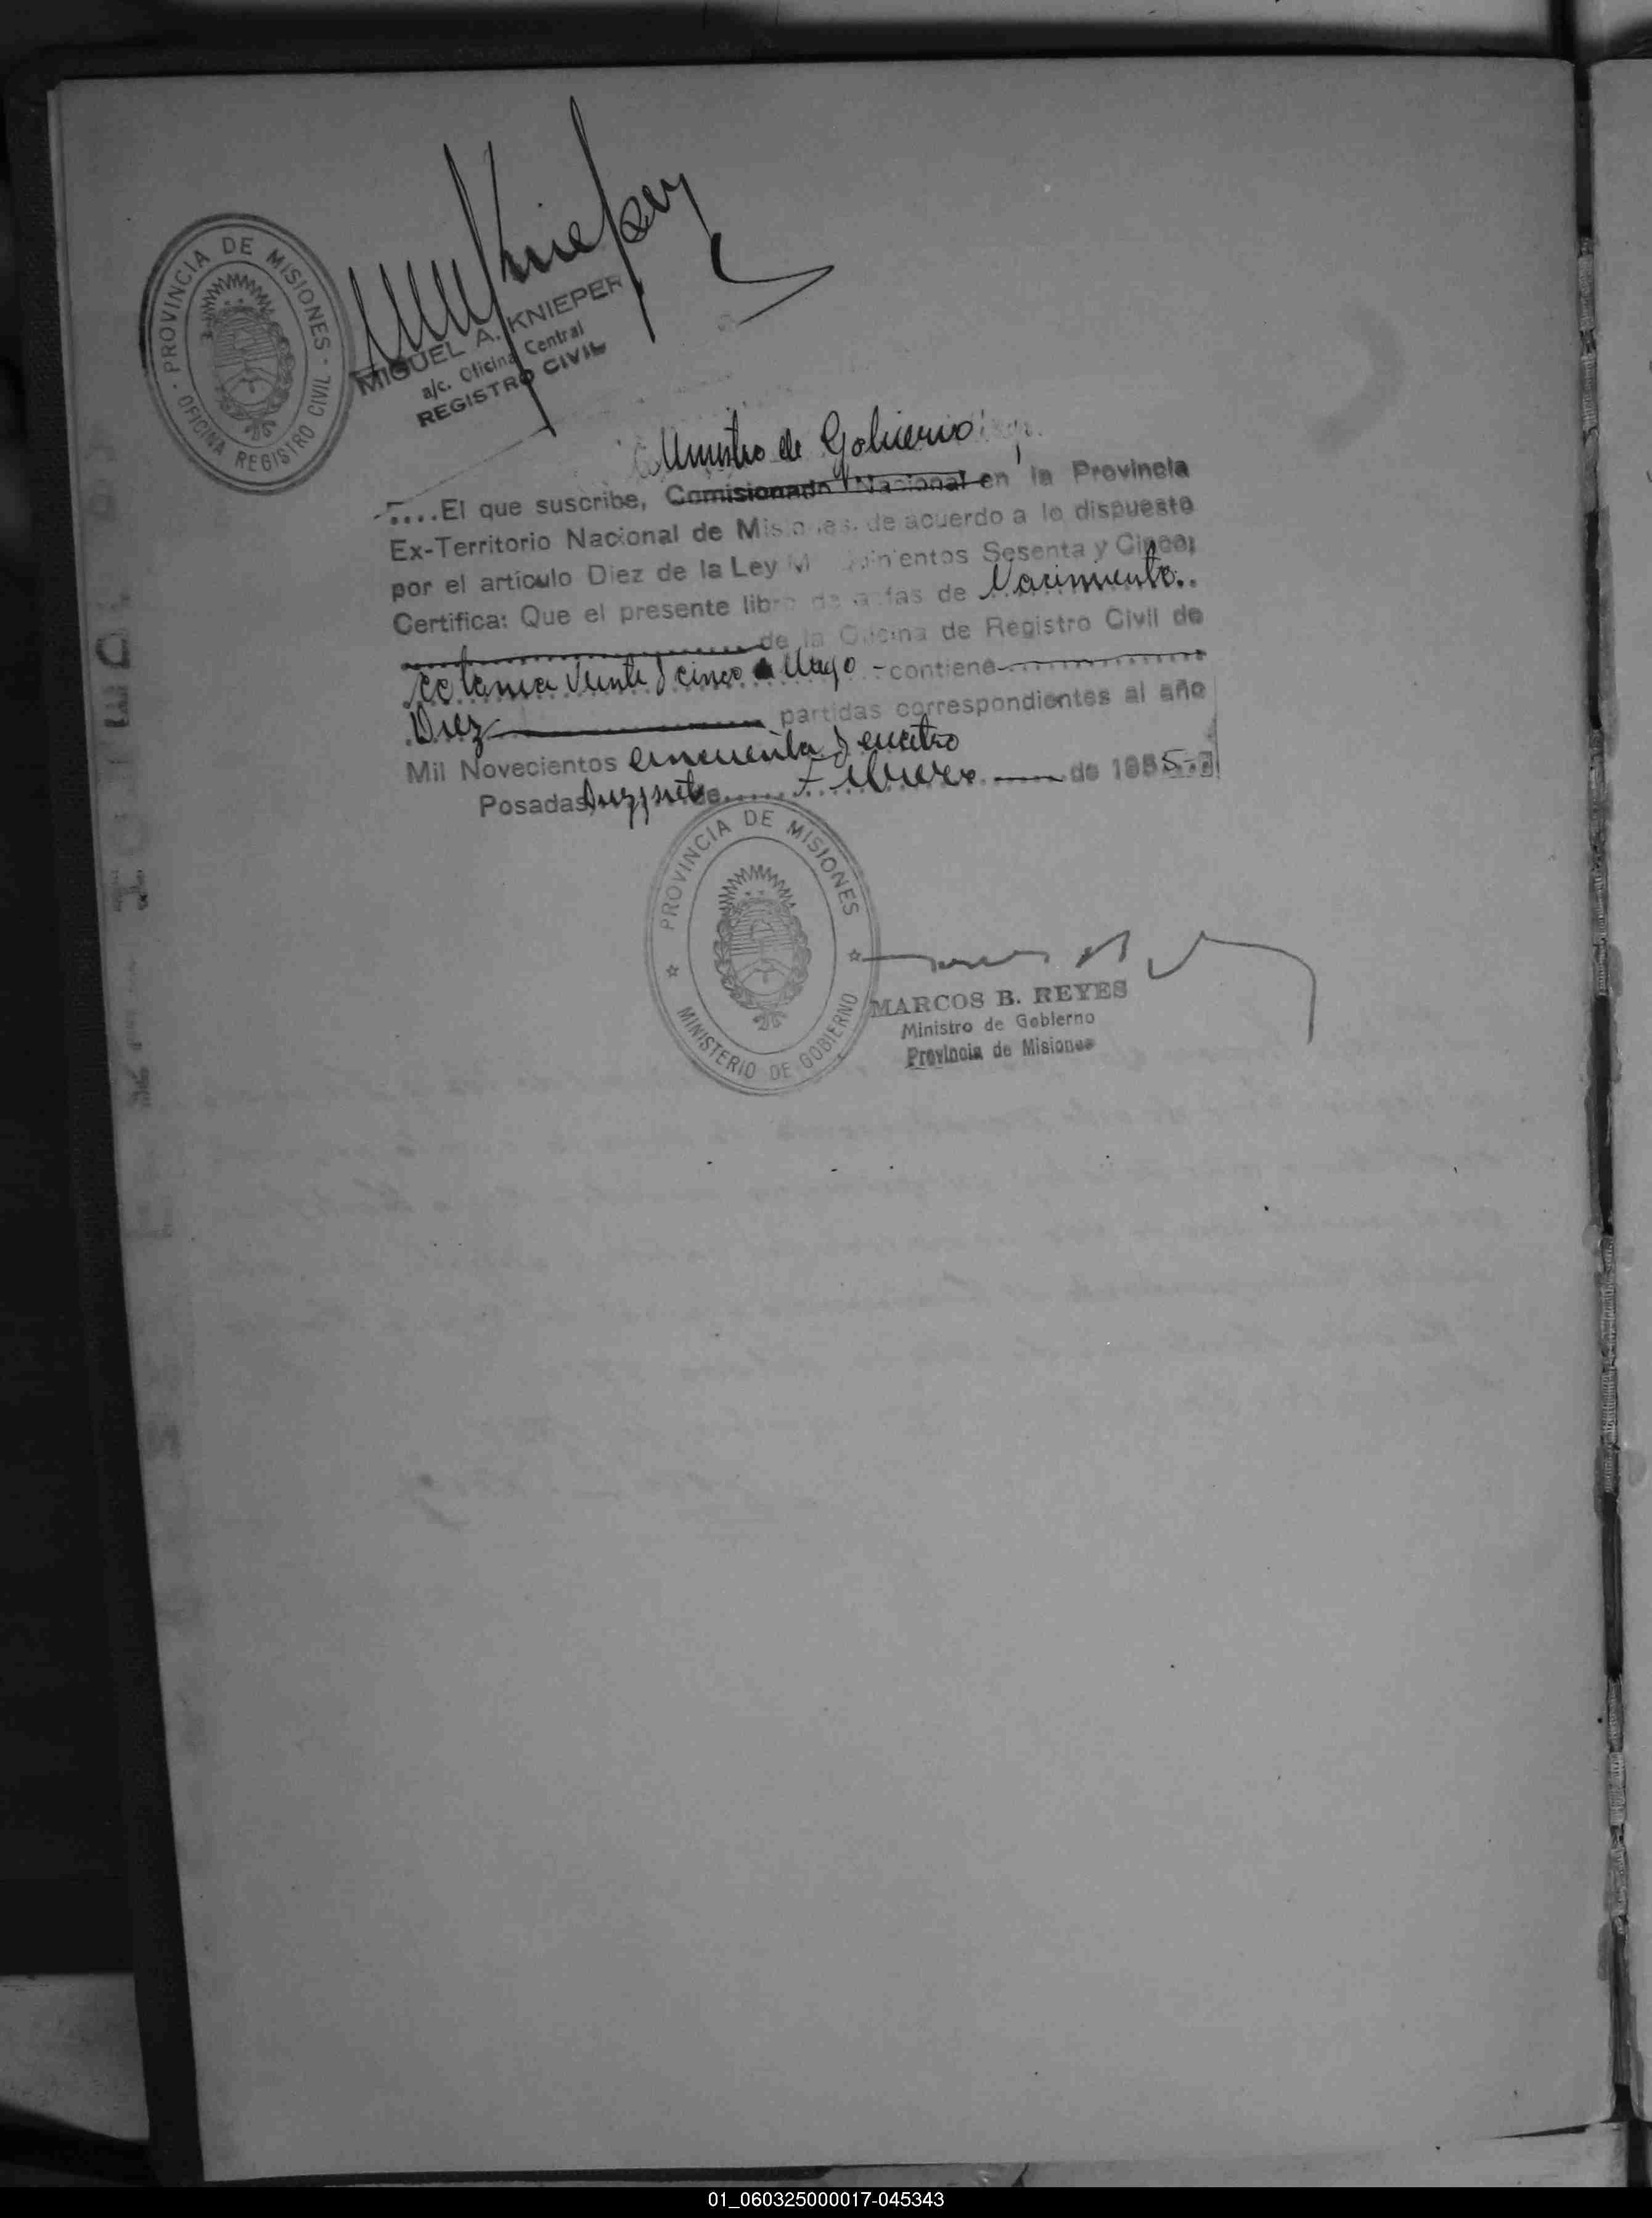 PROVINCIA DE MISIONES
OFICINA REGISTRO CIVIL
Knieper
MIGUEL A. KNIEPER
a/c. Oficina Central
REGISTRO CIVIL
Ministro de Gobierno
....El que suscribe, Comisionado Nacional en la Provincia
Ex-Territorio Nacional de Misiones. de acuerdo a lo dispuesto
por el artículo Diez de la Ley Sesenta y Cinco;
Certifica: Que el presente libro de actas de Nacimiento..
de la Oficina de Registro Civil de
Veinte y cinco de Mayo - contiene
Diez partidas correspondientes al año
Mil Novecientos cincuenta y cuatro
Posadas, Diez y siete de Febrero de 1955
PROVINCIA DE MISIONES
MINISTERIO DE GOBIERNO
MARCOS B. REYES
Ministro de Gobierno
Provincia de Misiones
01_060325000017-045343